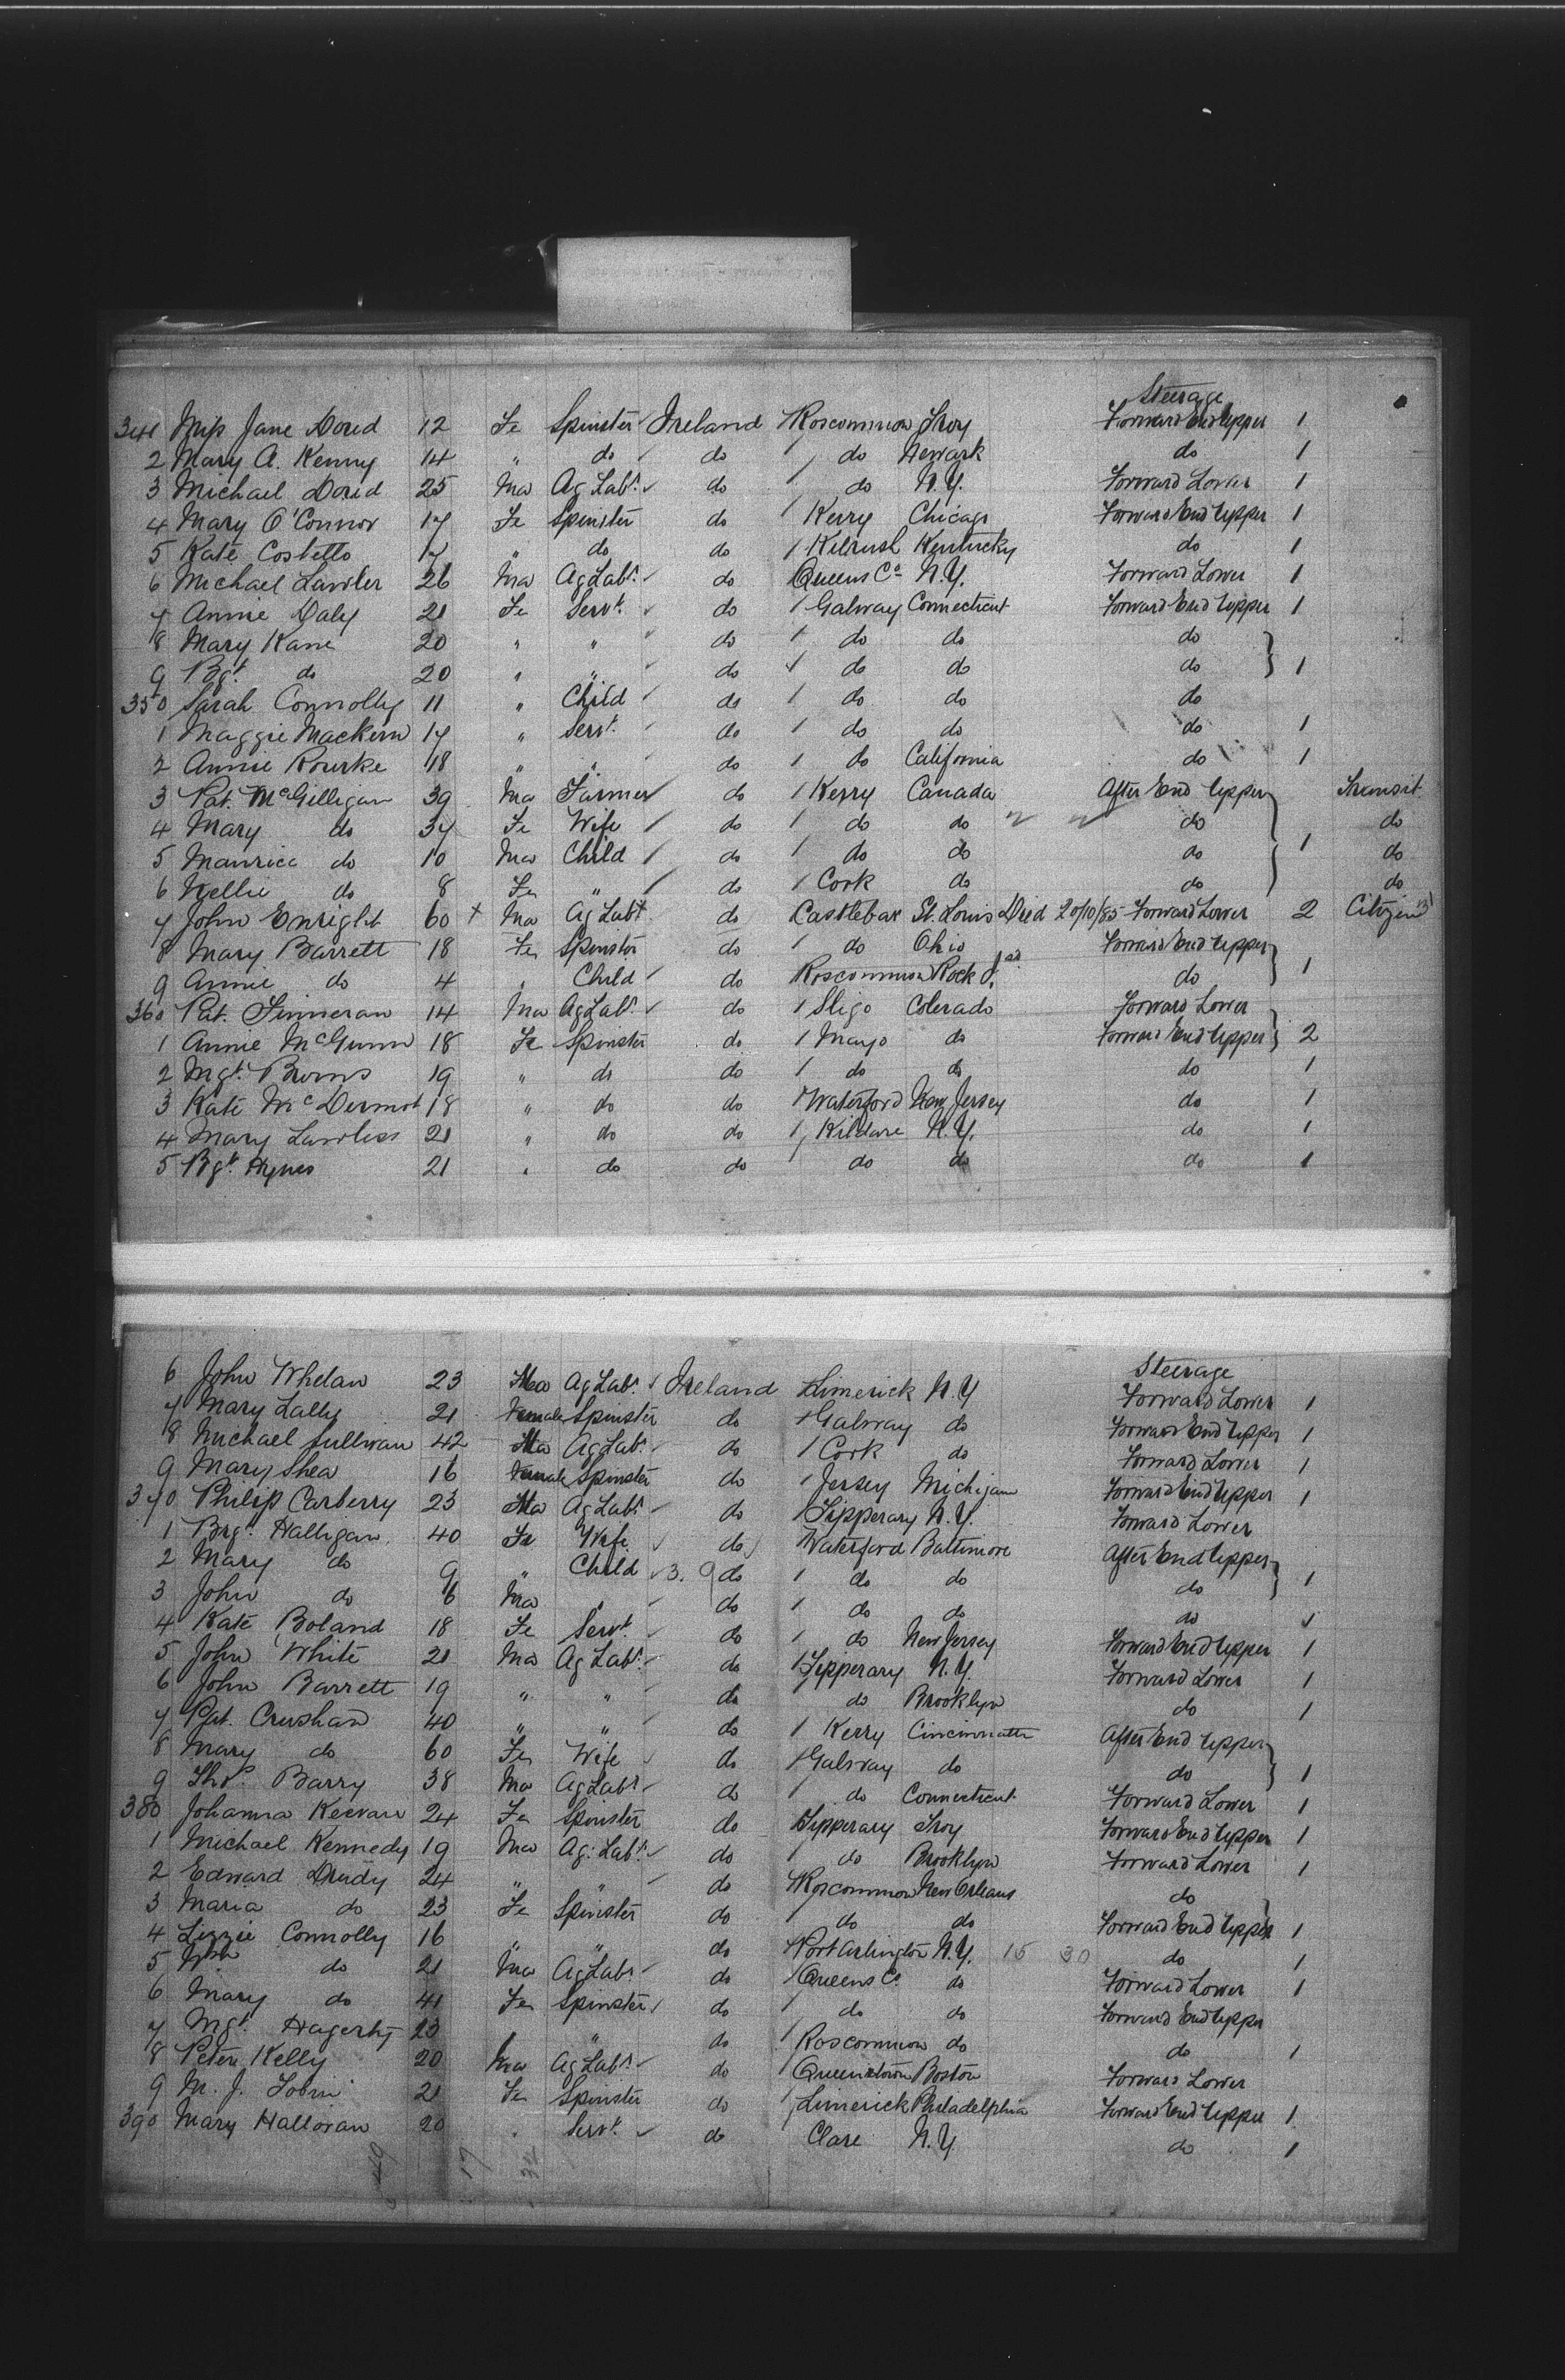 Steerage
341 Miss Jane Dowd 12 Fe Spinster Ireland Roscommon Troy Forward End Upper 1
2 Mary A. Kenny 14 " do do do Newark do 1
3 Michael Dowd 25 Ma Ag Labr. do do N.Y. Forward Lower 1
4 Mary O'Connor 17 Fe Spinster do Kerry Chicago Forward End Upper 1
5 Kate Costello 17 " do do Kilrush Kentucky do 1
6 Michael Lawler 26 Ma Ag Labr. do Queens Co N.Y. Forward Lower 1
7 Annie Daly 21 Fe Servt. do Galway Connecticut Forward End Upper 1
8 Mary Kane 20 " " do do do do
9 Bgt. do 20 " " do do do do 1
350 Sarah Connolly 11 " Child do do do do
1 Maggie Mackern 17 " Servt. do do do do 1
2 Annie Rourke 18 " " do do California do 1
3 Pat. McGilligan 39 Ma Farmer do Kerry Canada After End Upper Transit
4 Mary do 37 Fe Wife do do do do do
5 Maurice do 10 Ma Child do do do do 1 do
6 Nellie do 8 Fe " do Cork do do do
7 John Enright 60 + Ma Ag Labr do Castlebar St. Louis Died 20/10/85 Forward Lower 2 Citizen
8 Mary Barrett 18 Fe Spinster do do Ohio Forward End Upper
9 Annie do 4 " Child do Roscommon Rock Isd do 1
360 Pat. Finneran 14 Ma Ag Labr. do Sligo Colerado Forward Lower
1 Annie McGunn 18 Fe Spinster do Mayo do Forward End Upper 2
2 Mgt. Burns 19 " do do do do do 1
3 Kate McDermot 18 " do do Waterford New Jersey do 1
4 Mary Lawless 21 " do do Kildare N.Y. do 1
5 Bgt. Hynes 21 " do do do do do 1
Steerage
6 John Whelan 23 Ma Ag Labr. Ireland Limerick N.Y Forward Lower 1
7 Mary Lally 21 Female Spinster do Galway do Forward End Upper 1
8 Michael Sullivan 42 Ma Ag Labr. do Cork do Forward Lower 1
9 Mary Shea 16 Female Spinster do Jersey Michigan Forward End Upper 1
370 Philip Carberry 23 Ma Ag Labr do Tipperary N.Y. Forward Lower
1 Brgt. Halligan 40 Fe Wife do Waterford Baltimore After End Upper
2 Mary do 9 " Child 3. 9 do do do do 1
3 John do 6 Ma " do do do do
4 Kate Boland 18 Fe Servt. do do New Jersey Forward End Upper 1
5 John White 21 Ma Ag Labr. do Tipperary N.Y. Forward Lower 1
6 John Barrett 19 " " do do Brooklyn do 1
7 Pat. Crushan 40 " " do Kerry Cincinnatti After End Upper
8 Mary do 60 Fe Wife do Galway do do 1
9 Thos. Barry 38 Ma Ag Labr do do Connecticut Forward Lower 1
380 Johanna Keevan 24 Fe Spinster do Tipperary Troy Forward End Upper 1
1 Michael Kennedy 19 Ma Ag. Labr. do do Brooklyn Forward Lower 1
2 Edward Drudy 24 " " do Roscommon New Orleans do
3 Maria do 23 Fe Spinster do do do Forward End Upper 1
4 Lizzie Connolly 16 " " do Portarlington N.Y. 15 30 do 1
5 do 21 Ma Ag Labr do Queens Co do Forward Lower 1
6 Mary do 41 Fe Spinster do do do Forward End Upper
7 Mgt. Hagerty 23 " do Roscommon do do 1
8 Peter Kelly 20 Ma Ag Labr. do Queenstown Boston Forward Lower
9 M. J. Tobin 21 Fe Spinster do Limerick Philadelphia Forward End Upper 1
390 Mary Halloran 20 " Servt. do Clare N.Y. do 1
49 17 32